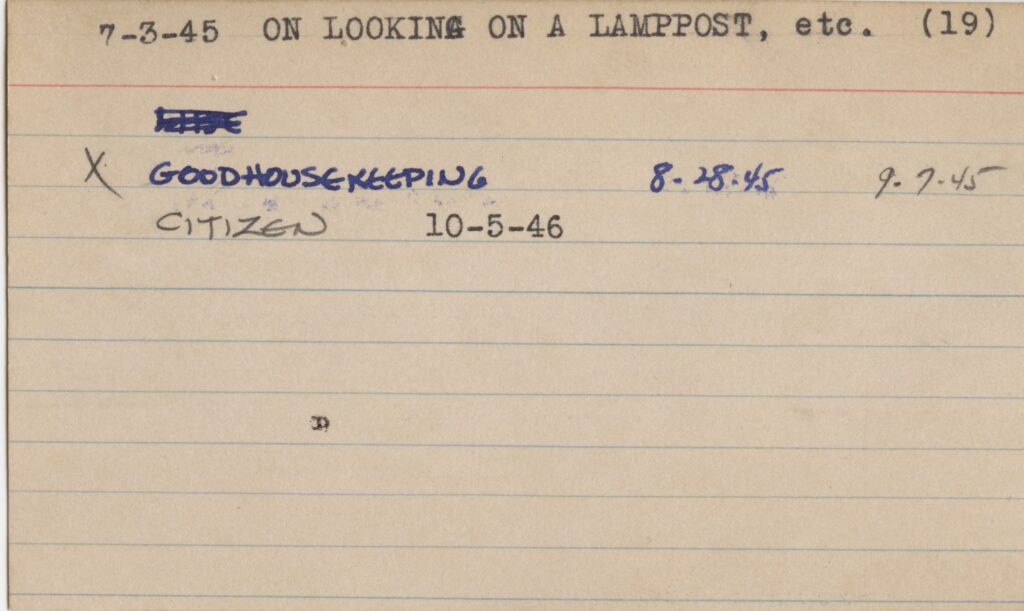 7-3-45 ON LOOKING ON A LAMPPOST, etc. (19)
X GOODHOUSEKEEPING 8-28-45 9-7-45
CITIZEN 10-5-46
D